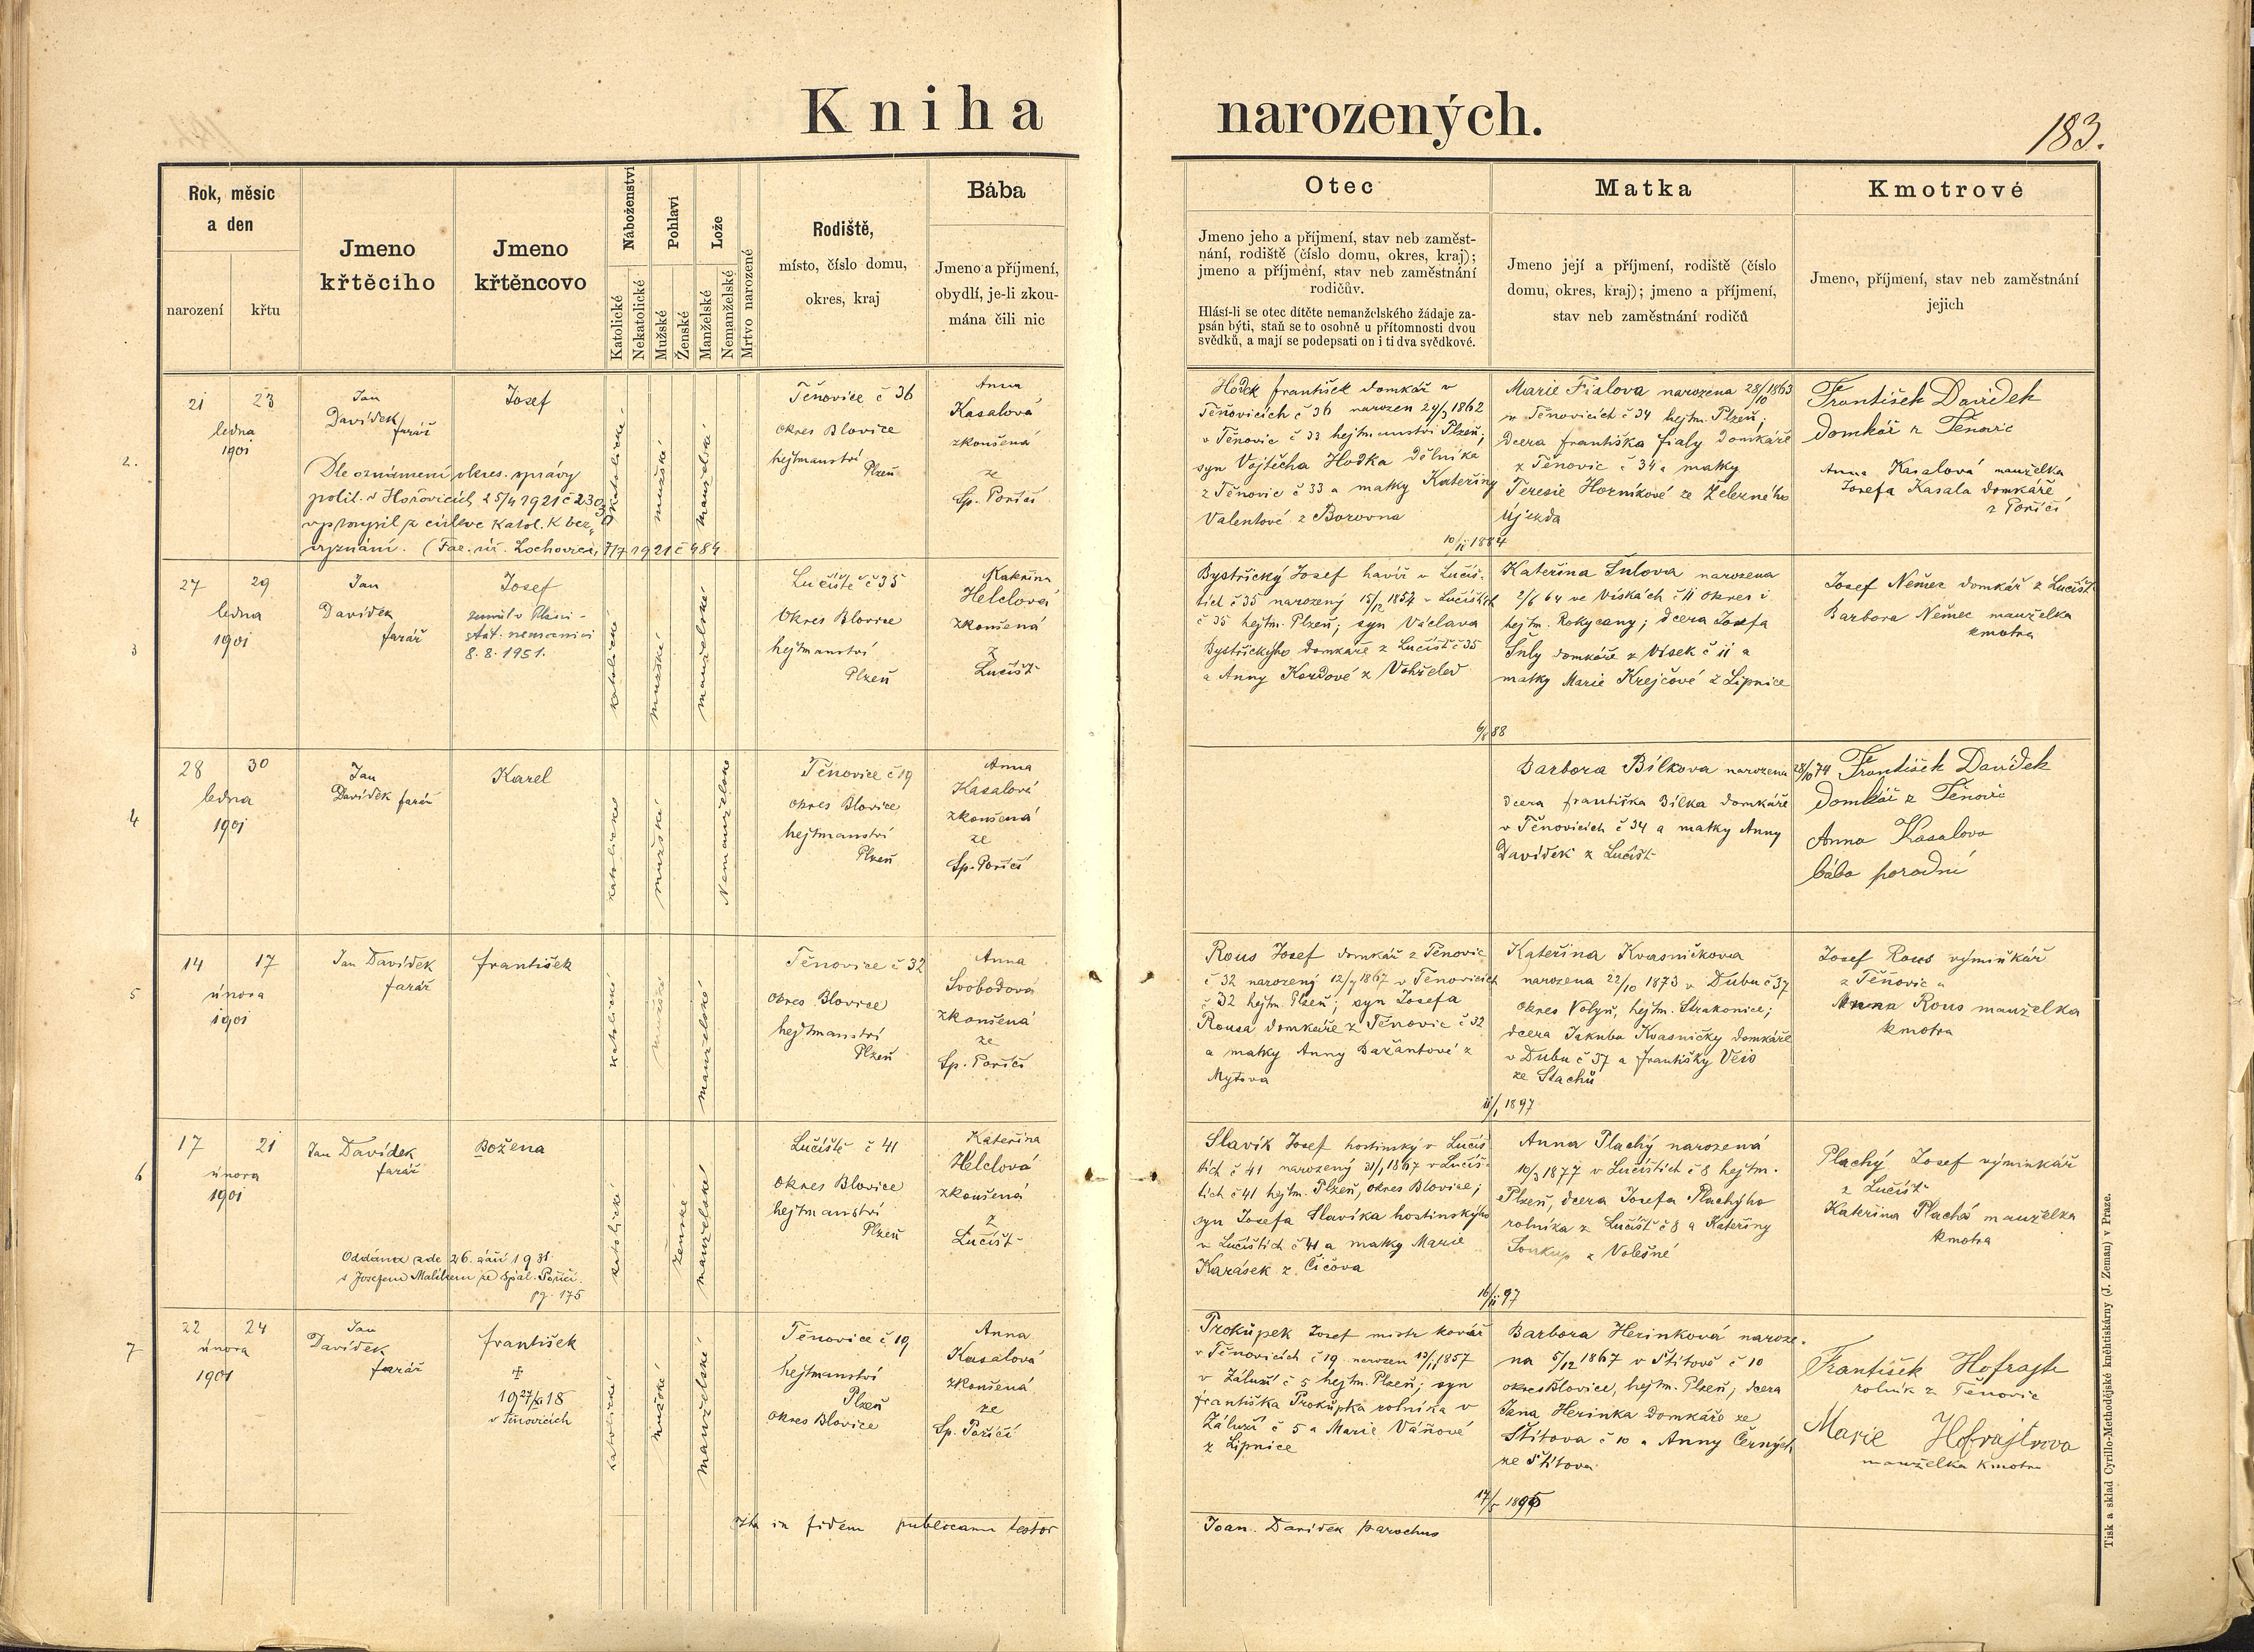 Kniha narozených.
183.
Rok, měsíc
a den
narození
křtu
Jmeno
křtěcího
Jmeno
křtěncovo
Náboženství
Katolické
Nekatolické
Pohlaví
Mužské
Ženské
Lože
Manželské
Nemanželské
Mrtvo narozené
Rodiště,
místo, číslo domu,
okres, kraj
Bába
Jmeno a příjmení,
obydlí, je-li zkou-
mána čili nic
Otec
Jmeno jeho a příjmení, stav neb zaměst-
nání, rodiště (číslo domu, okres, kraj);
jmeno a příjmení, stav neb zaměstnání
rodičův.
Hlásí-li se otec dítěte nemanželského žádaje za-
psán býti, staň se to osobně u přítomnosti dvou
svědků, a mají se podepsati on i ti dva svědkové.
Matka
Jmeno její a příjmení, rodiště (číslo
domu, okres, kraj); jmeno a příjmení,
stav neb zaměstnání rodičů
Kmotrové
Jmeno, příjmení, stav neb zaměstnání
jejich
2.
21 23
ledna
1901
Jan
Davídek
farář
Josef
Dle oznámení okres. správy
polit. v Hořovicích 25/4 1921 č 2303
vystoupil z církve katol. k bez-
vyznání. (Far. úř. Lochovice, 7/7 1921 č 484
katolické
mužské
manželské
Těnovice č 36
okres Blovice
hejtmanství
Plzeň
Anna
Kasalová
zkoušená
ze
Sp. Poříčí
Hodek František domkář v
Těnovicích č 36 narozen 24/3 1862
v Těnovic č 33 hejtmanství Plzeň;
syn Vojtěcha Hodka dělníka
z Těnovic č 33 a matky Kateřiny
Valentové z Borovna
Marie Fialova narozena 28/10 1863
v Těnovicích č 34 hejtm. Plzeň;
dcera františka fialy domkáře
z Těnovic č 34 a matky
Teresie Horníkové ze Železného
Újezda
10/II 1884
František Davídek
domkář z Těnovic
Anna Kasalová manželka
Josefa Kasala domkáře
z Poříčí
3
27 29
ledna
1901
Jan
Davídek
farář
Josef
zemřel v Plzni -
stát. nemocnici
8. 8. 1951.
katolické
mužské
manželské
Lučiště č 35
Okres Blovice
hejtmanství
Plzeň
Kateřina
Helclová
zkoušená
z
Lučišt
Bystřický Josef havíř v Lučiš-
tích č 35 narozený 15/12 1854 v Lučištích
č 35 hejtm. Plzeň; syn Václava
Bystřickýho domkáře z Lučišť č 35
a Anny Kordové z Vohřeled
Kateřina Šulova narozena
2/6 64 ve Vískách č 11 okres i
hejtm. Rokycany; dcera Josefa
Šuly domkáře z Vísek č 11 a
matky Marie Krejčové z Lipnice
Josef Němec domkář z Lučišt
Barbora Němec manželka
kmotra
4
28 30
ledna
1901
Jan
Davídek farář
Karel
katolické
mužské
Nemanželské
Těnovice č 19
okres Blovice
hejtmanství
Plzeň
Anna
Kasalová
zkoušená
ze
Sp. Poříčí
Barbora Bílkova narozena 28/10 74
dcera františka Bílka domkáře
v Těnovicích č 34 a matky Anny
Davídek z Lučišt
František Davídek
domkář z Těnovic
Anna Kasalova
bába porodní
5
14 17
února
1901
Jan Davídek
farář
františek
katolické
mužské
manželské
Těnovice č 32
okres Blovice
hejtmanství
Plzeň
Anna
Svobodová
zkoušená
ze
Sp. Poříčí
Rous Josef domkář z Těnovic
č 32 narozený 12/7 1867 v Těnovicích
č 32 hejtm. Plzeň; syn Josefa
Rousa domkáře z Těnovic č 32
a matky Anny Bažantové z
Mytova
Kateřina Kvasničkova
narozena 22/10 1873 v Dubu č 37
okres Volyň, hejtm. Strakonice;
dcera Jakuba Kvasničky domkáře
v Dubu č 37 a františky
ze Stachů
Josef Rous výminkář
z Těnovic a
Anna Rous manželka
kmotra
6
17 21
února
1901
Jan Davídek
farář
Božena
Oddána zde 26. září 1931
s Josefem Malíkem ze Spál. Poříčí.
pg. 175
katolické
ženské
manželské
Lučiště č 41
okres Blovice
hejtmanství
Plzeň
Kateřina
Helclová
zkoušená
z
Lučišt
Slavík Josef hostinský v Lučiš
tích č 41 narozený 31/1 1867 v Lučiš-
tích č 41 hejtm. Plzeň, okres Blovice;
syn Josefa Slavíka hostinskýho
v Lučištích č 41 a matky Marie
Karásek z Čičova
Anna Plachý narozená
10/3 1877 v Lučištích č 8 hejtm.
Plzeň, dcera Josefa Plachýho
rolníka z Lučišť č 8 a Kateřiny
Soukup z Volešné
Plachý Josef výminkář
z Lučišt
Kateřina Plachá manželka
kmotra
7
22 24
února
1901
Jan
Davídek
farář
františek
+
v Těnovicích
katolické
mužské
manželské
Těnovice č 19
hejtmanství
Plzeň
okres Blovice
Anna
Kasalová
zkoušená
ze
Sp. Poříčí
Prokůpek Josef mistr kovář
v Těnovicích č 19 narozen 13/11 1857
v Záluží č 5 hejtm. Plzeň; syn
františka Prokůpka rolníka v
Záluží č 5 a Marie Váňové
z Lipnice
Barbora Herinková naroze-
na 5/12 1867 v Štítově č 10
okres Blovice, hejtm. Plzeň; dcera
Jana Herinka domkáře ze
Štítova č 10 a Anny Černých
ze Štítova
František Hofrajtr
rolník z Těnovic
Marie Hofrajtrova
manželka kmotra
Ita in fidem publicam testor
Joan. Davídek parochus
Tisk a sklad Cyrillo-Methodějské knehtiskárny (J. Zeman) v Praze.